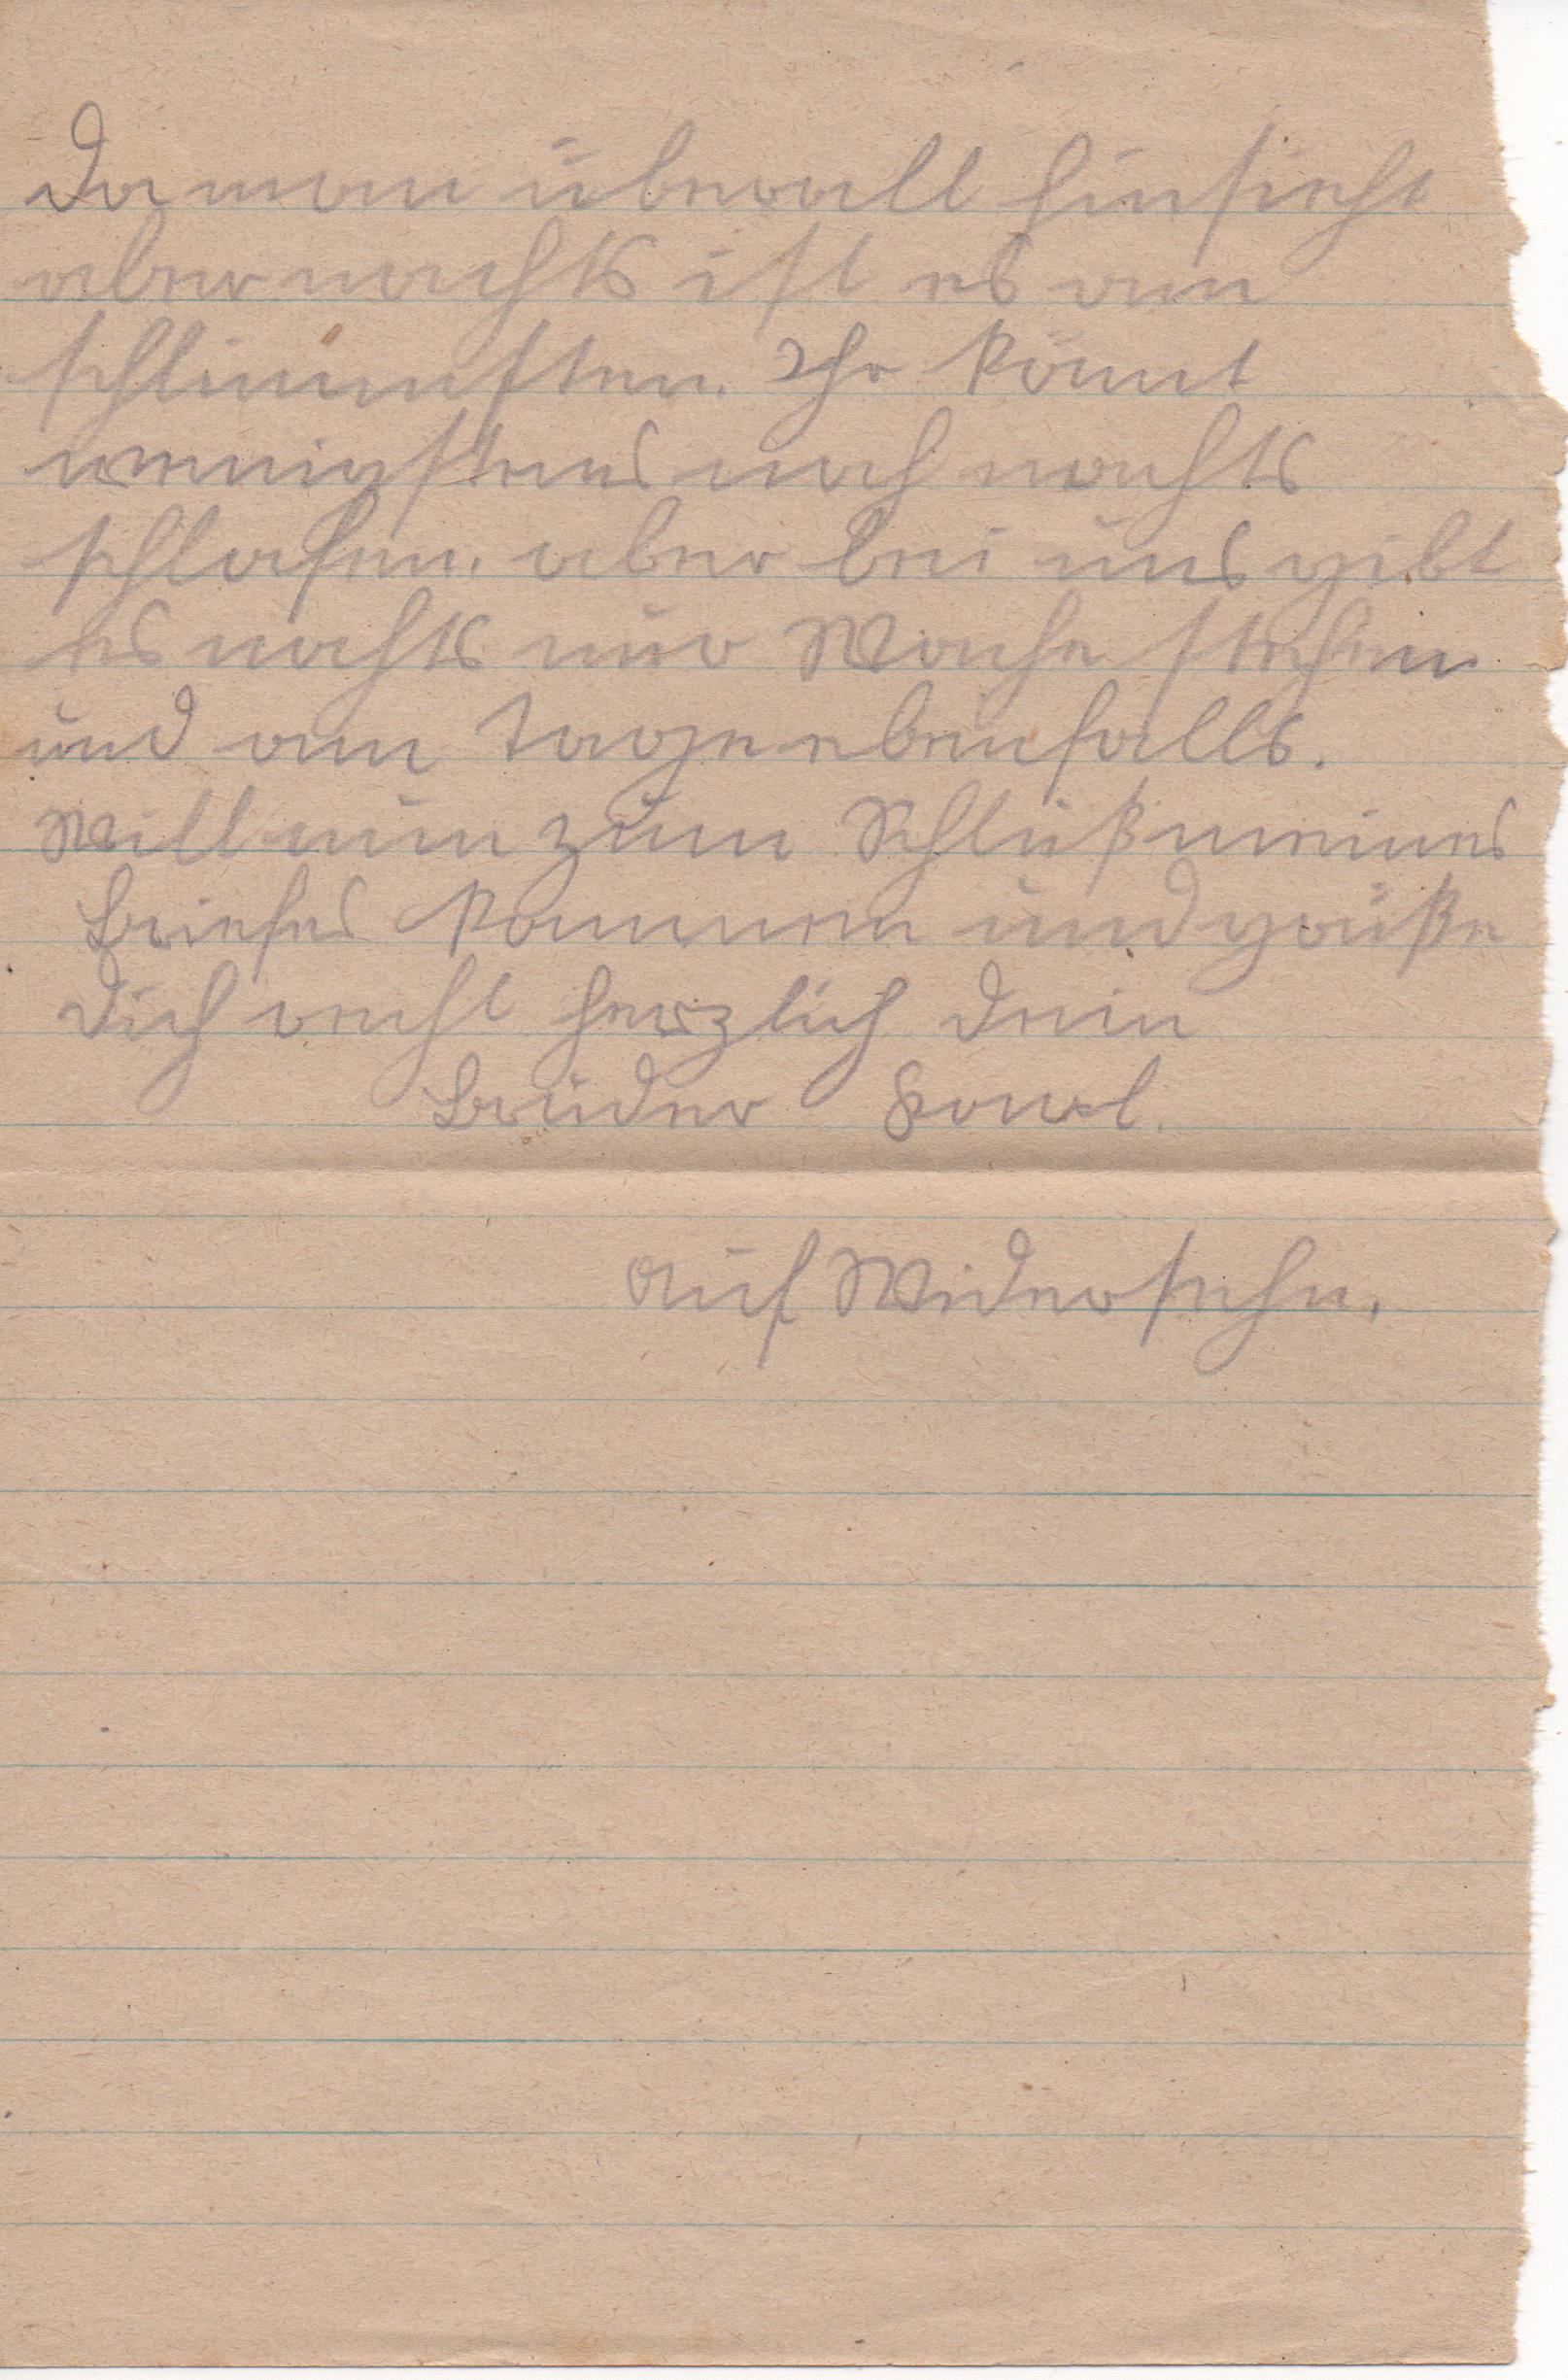 Da man überall hinsieht
aber nachts ist es am
schlimmsten. Ihr könnt
wenigstens noch nachts
schlafen. aber bei uns gibt
es nachts nur Wache stehen
und am Tage ebenfalls.
Will nun zum Schluß meines
Briefes kommen und grüße
Dich recht herzlich Dein
Bruder Karl.
Auf Widersehn.